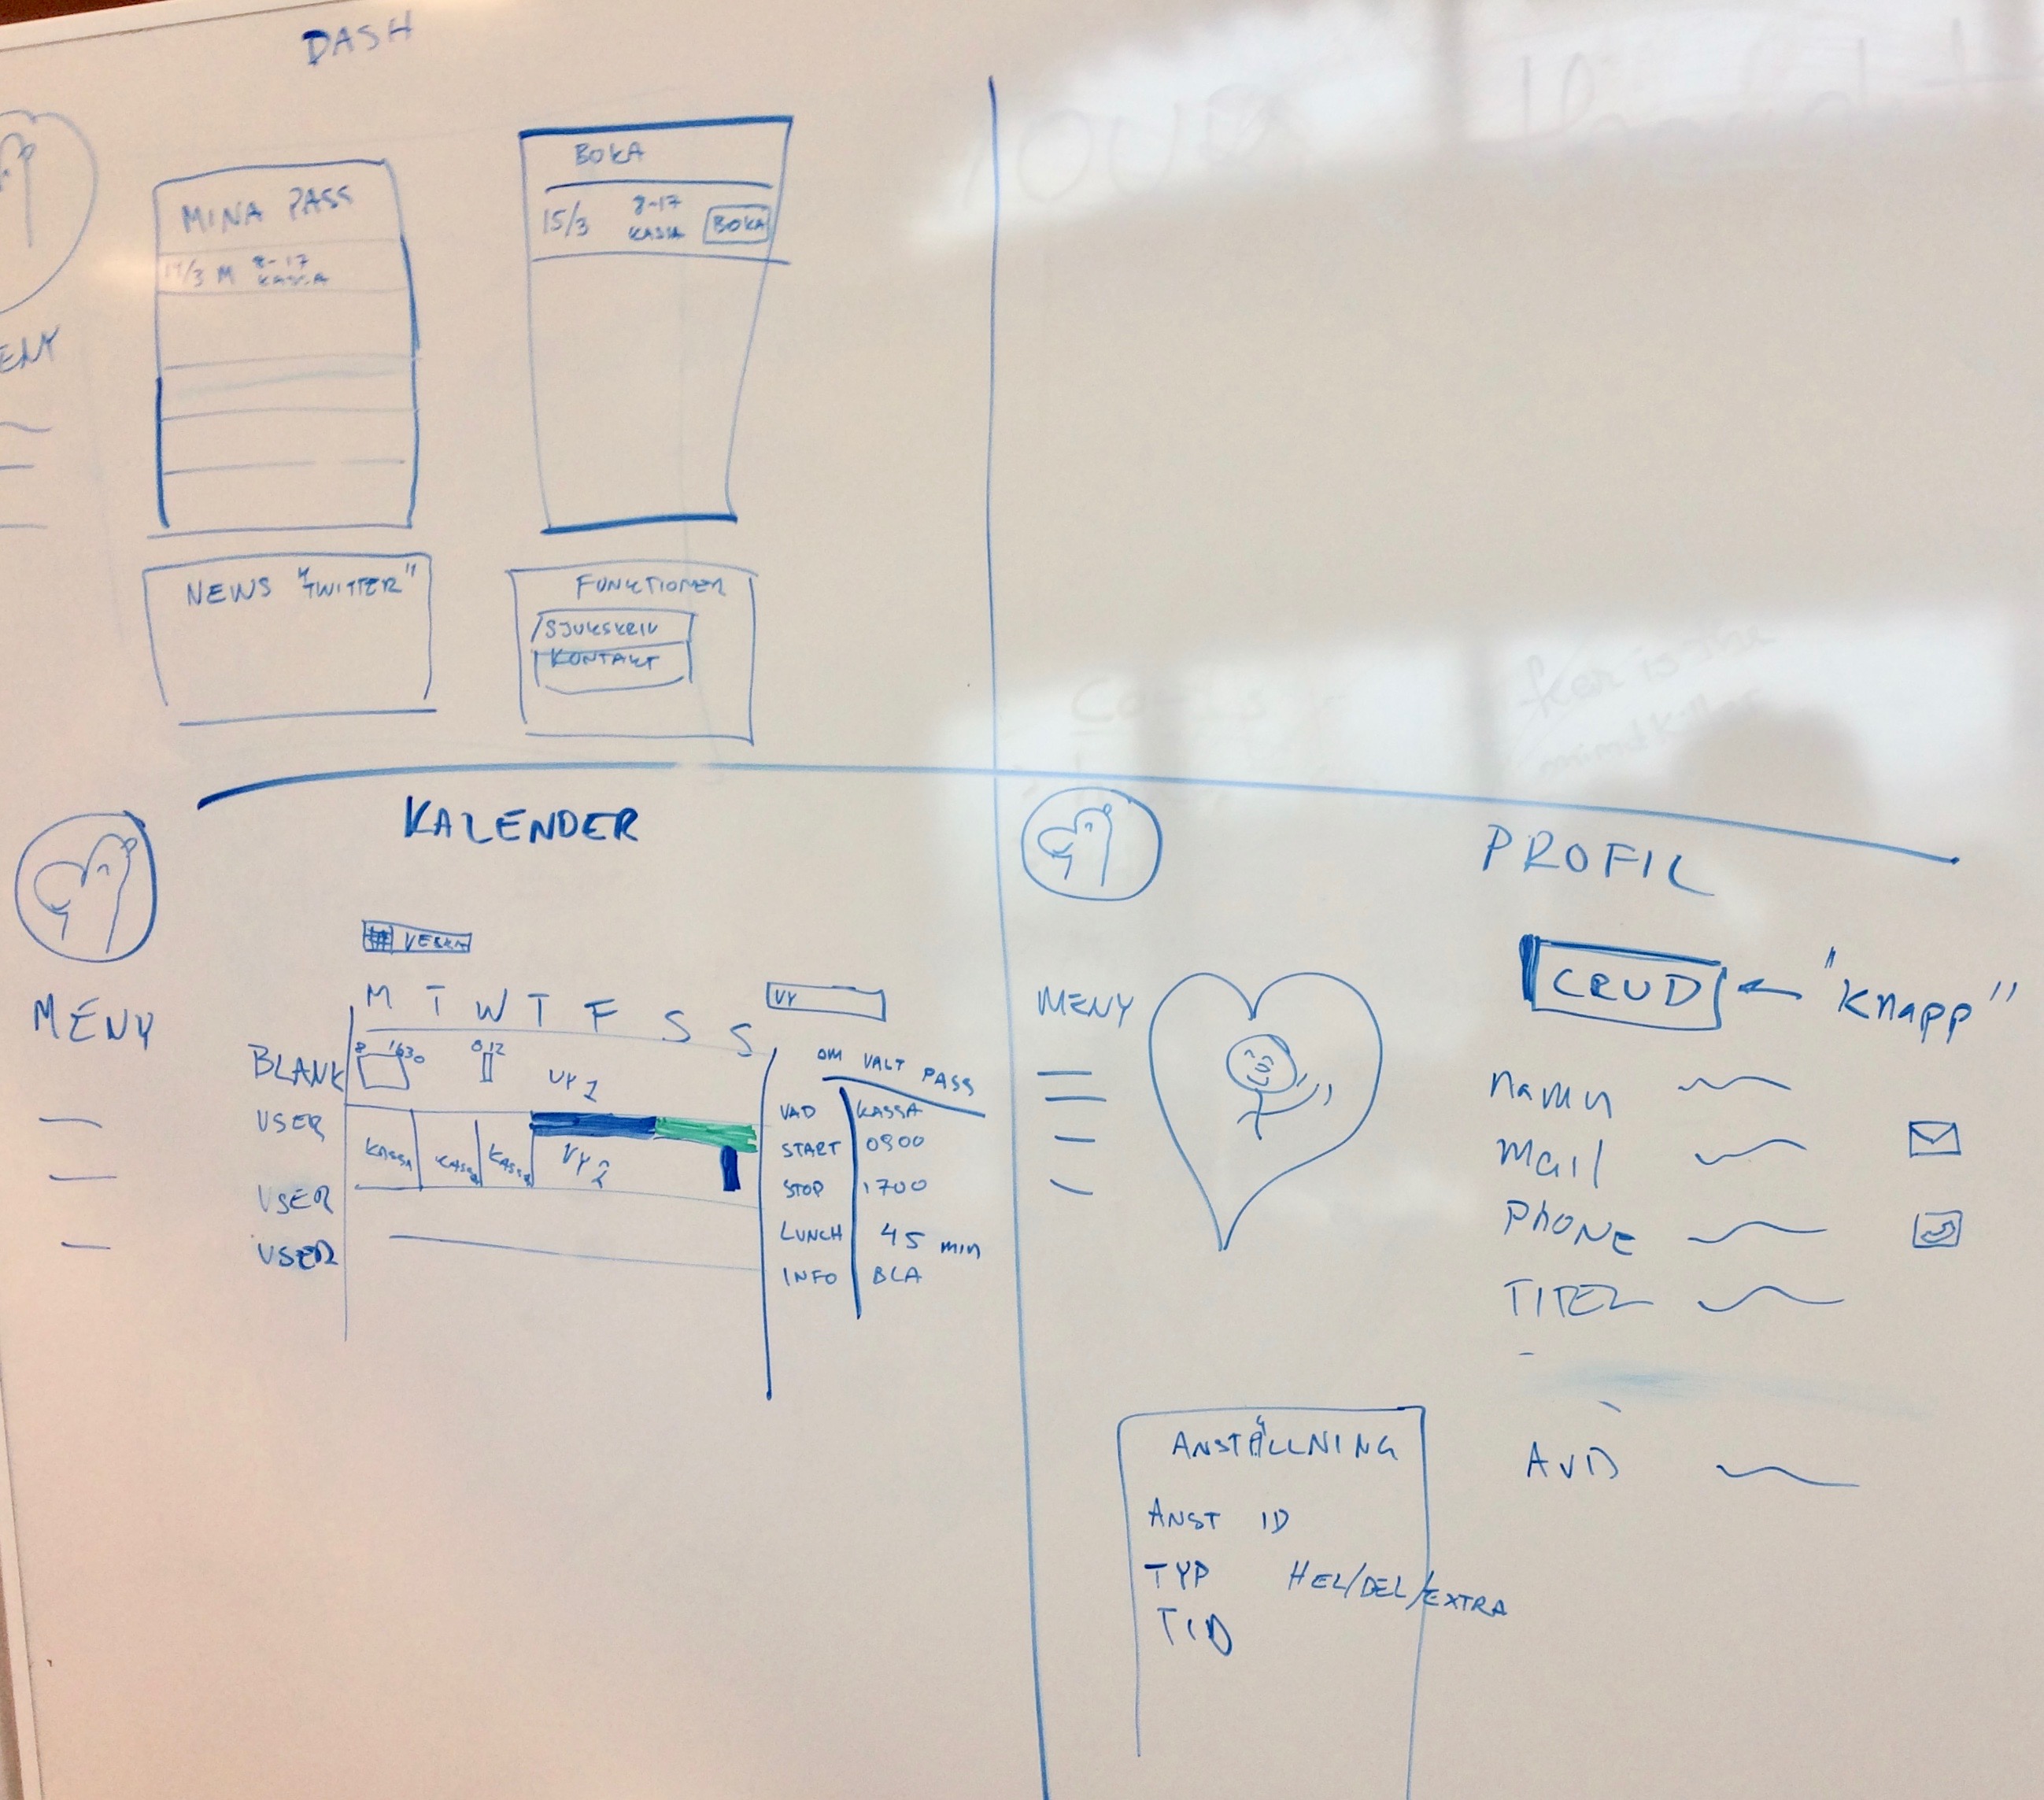 DASH
MINA PASS
/3 M 8-17
KASSA
BOKA
15/3 8-17
KASSA BOKA
ENY
NEWS "TWITTER"
FUNKTIONER
SJUKSKRIV
KONTAKT
KALENDER
MENY
VECKA
M T W T F S S
VY
BLANK 8 1630 8 12 VY 1
USER KASSA KASSA KASSA VY 2
USER
USER
OM VALT PASS
VAD KASSA
START 0900
STOP 1700
LUNCH 45 min
INFO BLA
PROFIL
MENY
CRUD "Knapp"
namn
mail
PhONE
TITEL
AVD
ANSTÄLLNING
ANST ID
TYP HEL/DEL/EXTRA
TID
fear is the
mind killer